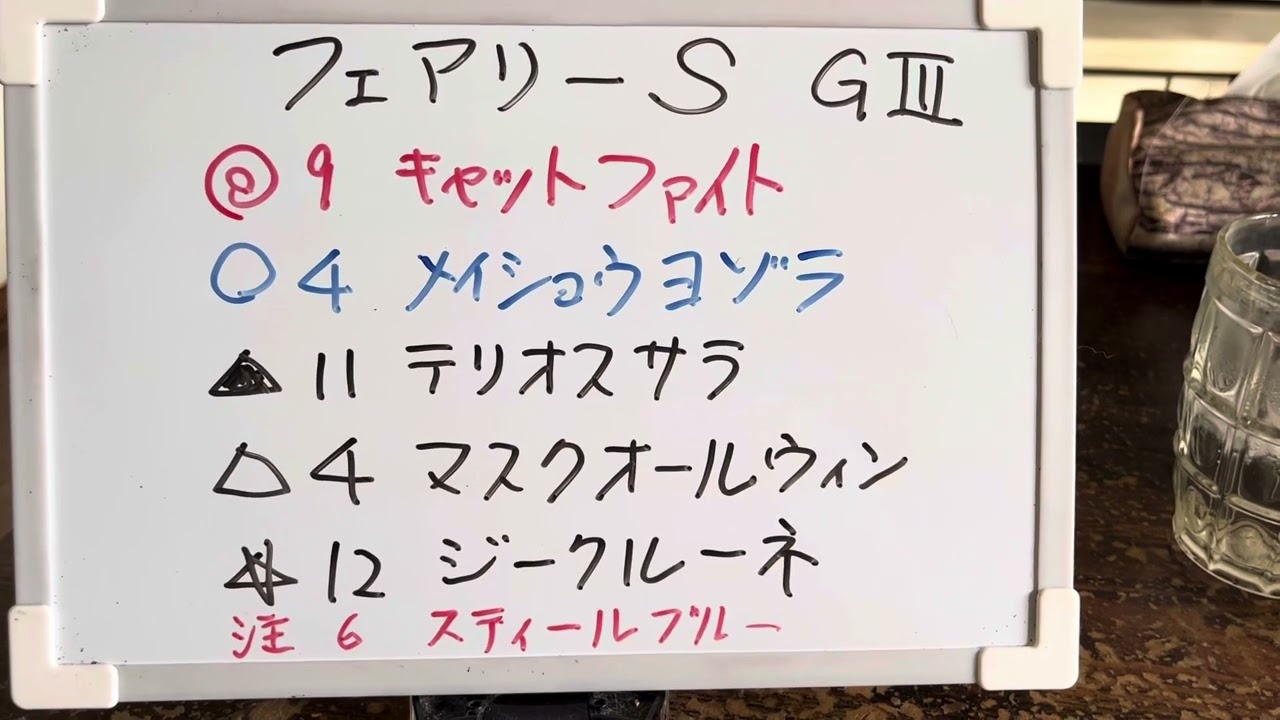 フェアリーS GIII
◎9 キャットファイト
○4 メイショウヨゾラ
▲11 テリオスサラ
△4 マスクオールウィン
☆12 ジークルーネ
注 6 スティールブルー